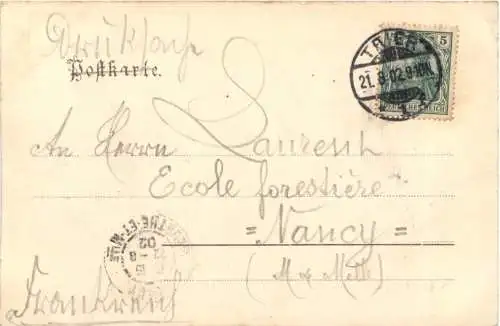 Drucksache
Postkarte.
5
TRIER
21.8.02.9-10V.
An Herrn Laurent
Ecole forestière
= Nancy =
(M & Melle)
MEURTHE-ET-M
02
Frankreich